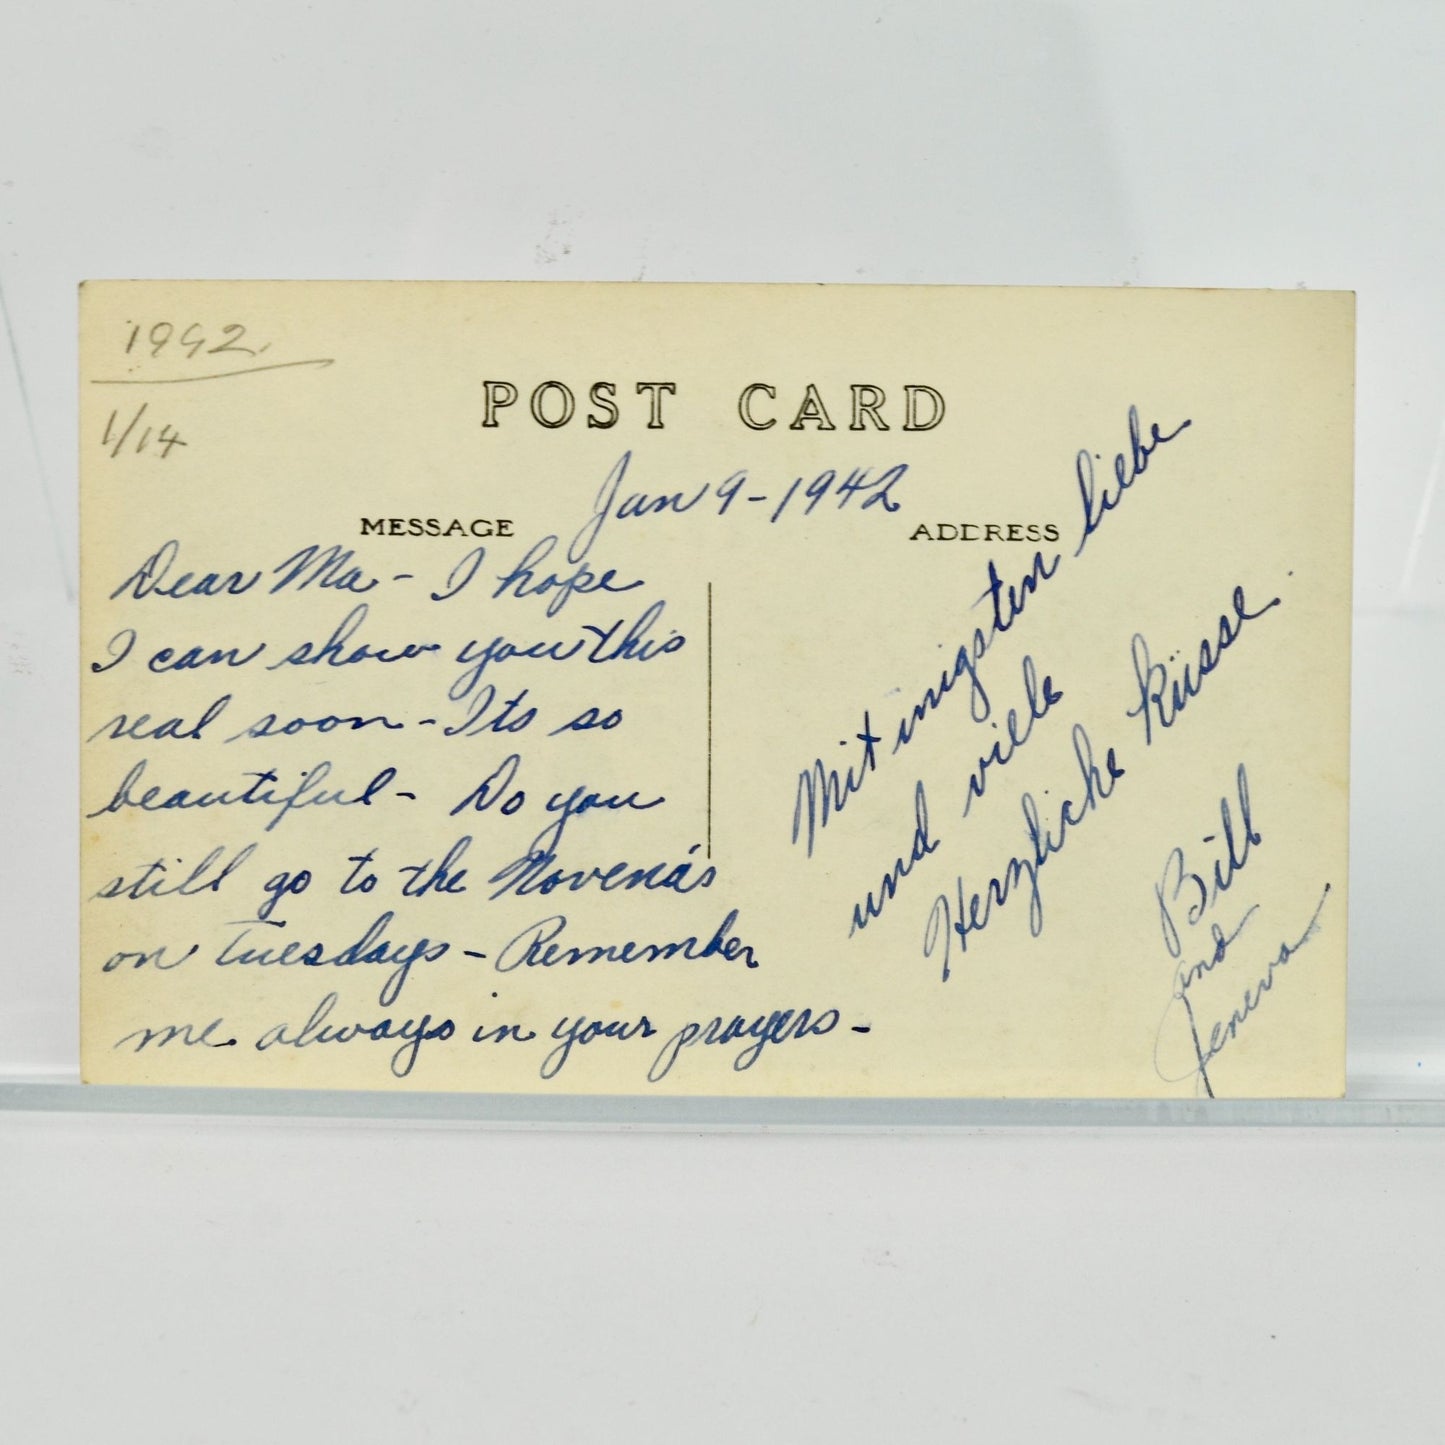 1942.
1/14
POST CARD
Jan 9-1942
MESSAGE
ADDRESS
Dear Ma - I hope
I can show you this
real soon - Its so
beautiful - Do you
still go to the Novena's
on Tuesdays - Remember
me always in your prayers -
Mit inigsten liebe
und viele
Herzliche Küsse.
Bill
and
Jeneva